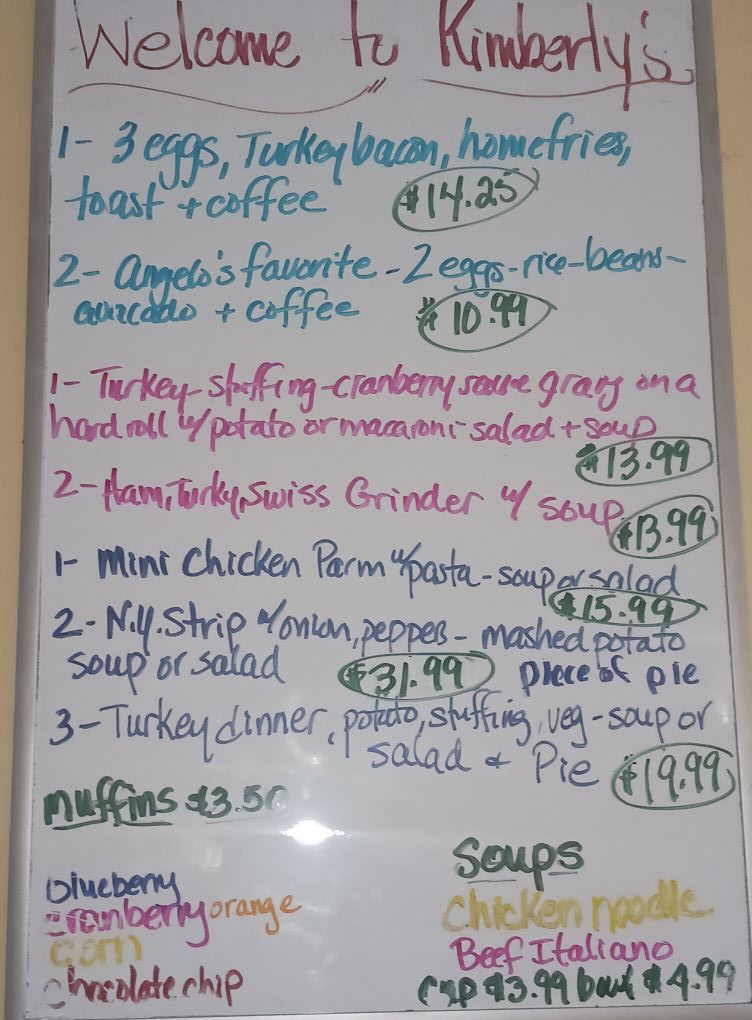 Welcome to Kimberly's
1- 3 eggs, Turkey bacon, homefries,
toast + coffee $14.25
2- Angelo's favorite - 2 eggs - rice - beans -
avacado + coffee $10.99
1- Turkey - stuffing - cranberry sauce gravy on a
hard roll w/ potato or macaroni salad + soup
$13.99
2- Ham, Turky, Swiss Grinder w/ soup
$13.99
1- Mini Chicken Parm w/pasta - soup or salad
$15.99
2- N.Y. Strip w/onion, peppers - mashed potato
soup or salad $31.99 piece of pie
3- Turkey dinner, potato, stuffing, veg - soup or
salad + Pie $19.99
muffins $3.50
Soups
blueberry
cranberry orange
corn
chocolate chip
Chicken noodle
Beef Italiano
cup $3.99 bowl $4.99